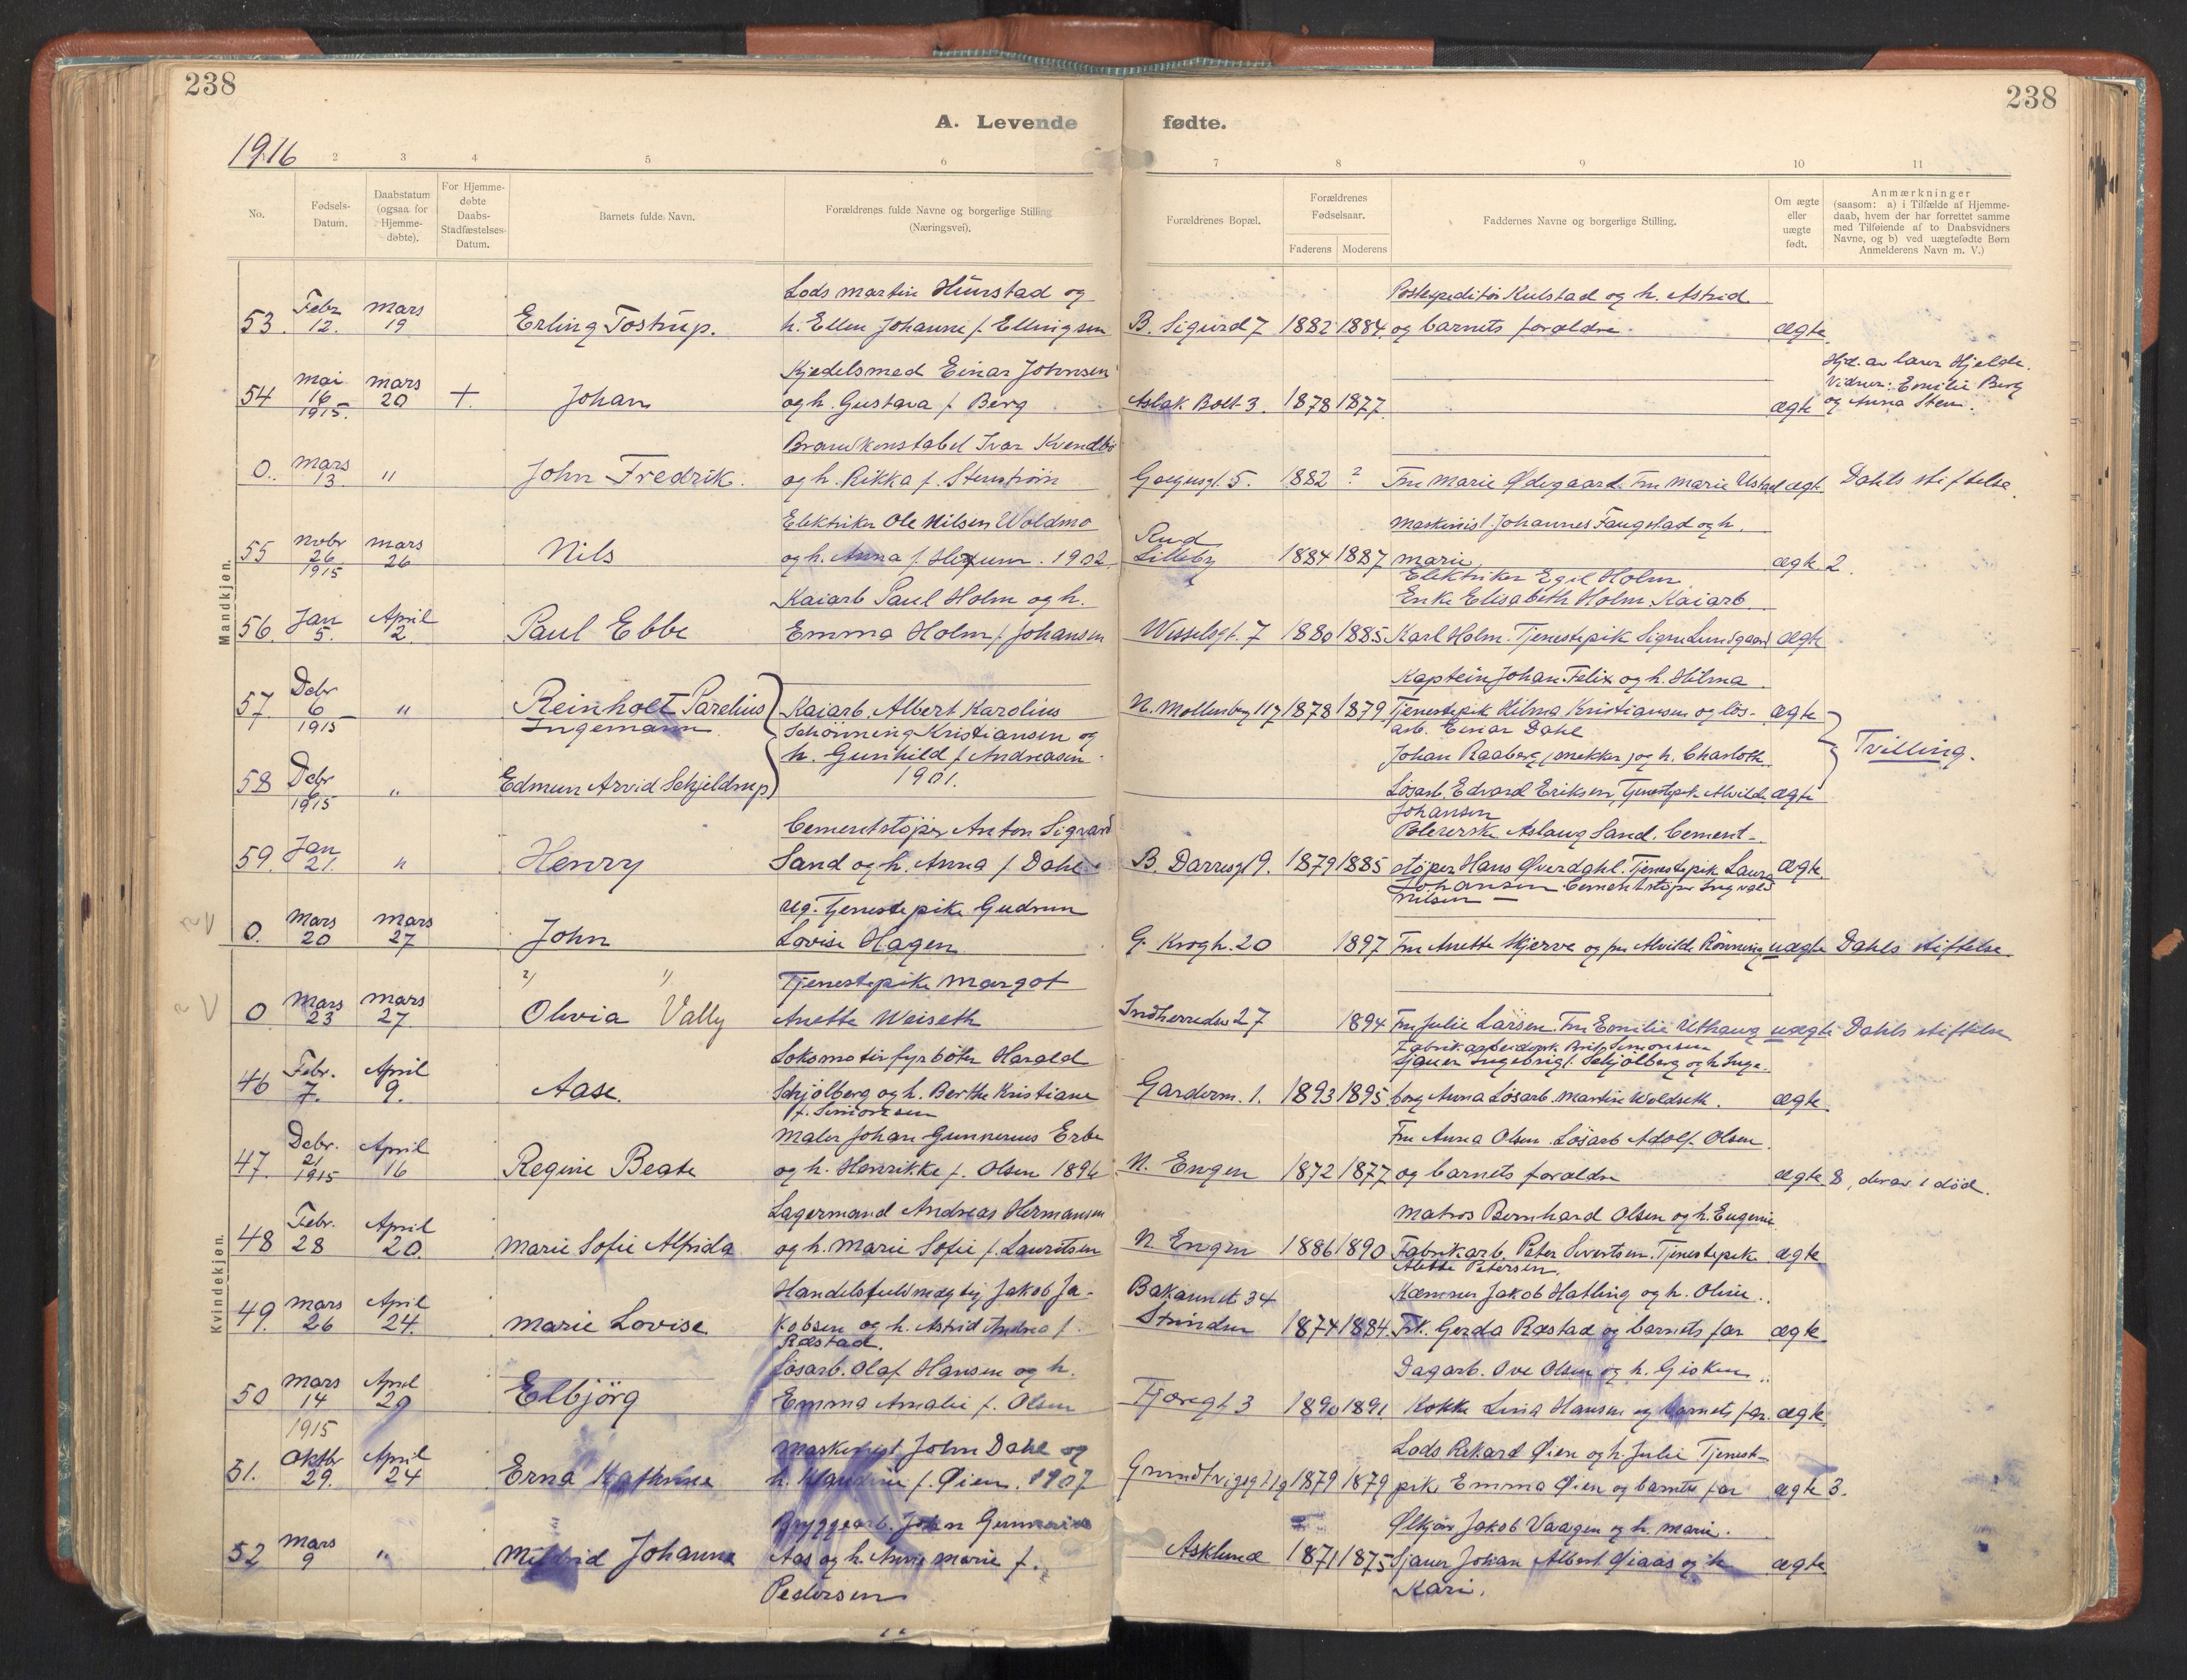 238
238
A. Levende fødte.
1916
2 3 4 5 6 7 8 9 10 11
No.
Fødsels-
Datum.
Daabstatum
(ogsaa for
Hjemme-
døbte).
For Hjemme-
døbte
Daabs-
Stadfæstelses-
Datum.
Barnets fulde Navn.
Forældrenes fulde Navne og borgerlige Stilling
(Næringsvei).
Forældrenes Bopæl.
Forældrenes
Fødselsaar.
Faderens Moderens
Faddernes Navne og borgerlige Stilling.
Om ægte
eller
uægte
født.
Anmærkninger
(saasom: a) i Tilfælde af Hjemme-
daab, hvem der har forrettet samme
med Tilføiende af to Daabsvidners
Navne, og b) ved uægtefødte Børn
Anmelderens Navn m. V.)
Mandkjøn.
Lods Martin Hunstad og
Postexpeditør Kulstad og h. Astrid
53. Febr. 12. Mars 19 Erling Tostrup. h. Ellen Johanne f. Ellingsen B. Sigurd 7 1882 1884 og barnets forældre. ægte
Kjedelsmed Einar Johnsen
Hjd. av lærer Hjelde.
Vidner: Emilie Berg
54 Mai 16 1915. Mars 20 +. Johan og h. Gustava f. Berg Aslak Bolt 3. 1878 1877. ægte og Anna Sten.
Brandkonstabel Ivar Kvendbø
0. Mars 13 " John Fredrik. og h. Rikka f. Stenstrøm 5. 1882 ? Fru Marie Ødegaard. Fru Marie Ustad ægte Dahls stiftelse.
Elektriker Ole Nilsen Woldmo
Rud
Maskinist Johannes Faugstad og h.
55 Novbr 26 1915 Mars 26 Nils og h. Anna f. Hexum. 1902. Lilleby 1884 1887 Marie. ægte 2.
Elektriker Egil Holm
Kaiarb Paul Holm og h.
Enke Elisabeth Holm. Kaiarb
56. Jan 5. April 2. Paul Ebbe Emma Holm f. Johansen Wesselsgt. 7 1880 1885 Karl Holm. Tjenestepik Signe Lundgaard ægte
Kaptein Johan Felix og h. Hilma
57. Debr 6 1915 " Reinholt Parelius Kaiarb. Albert Karolius N. Mollenberg 117 1878 1879 Tjenestepik Hilma Kristiansen og lös- ægte
Ingemann Schönning Kristiansen og
arb. Einar Dahl
h. Gunhild f. Andreasen
Johan Raaberg snekker og h. Charlotte
Tvilling.
58 Debr 6 1915 " Edmun Arvid Schjeldrup 1901. Løsarb. Edvard Eriksen, Tjenestpik Alvilde ægte
Johansen
Cementstøper Anton Sigvard
Polererske Aslaug Sand. Cement-
59. Jan 21. " Henry Sand og h. Anna f. Dahl B. Darresgt 9. 1879 1885 støper Hans Øverdahl. Tjenestepik Laura ægte.
Johansen. Cementstøper Ingvald
Nilsen
Ug. Tjenestepike Gudrun
0. Mars 20 Mars 27 John Lovise Hagen G. Krogh. 20 1897 Fru Anette Skjerve og fru Alvilde Rönning uægte Dahls stiftelse.
Kvindekjøn.
Tjenestepike Margot
0 Mars 23 Mars 27 Olivia Vally Anette Weiseth Indherredsv 27 1894 Fru Julie Larsen. Fru Emilie Uthaug uægte Dahls stiftelse
Lokomotivfyrbøter Harald
Sjauer Ingebrigt Schjølberg og h. Inge-
46 Febr. 7. April 9. Aase. Schjølberg og h. Berthe Kristiane Garderm. 1. 1893 1895 borg Anna Løsarb. Martin Woldseth. ægte.
f. Simonsen
Maler Johan Gunnerius Erbe
Fru Anna Olsen. Løsarb Adolf Olsen.
47. Debr. 21 1915 April 16 Regine Beate og h. Henrikke f. Olsen 1896 N. Engen 1872 1877 og barnets forældre ægte 8, derav 1 död.
Lagermand Andreas Hermansen
Matros Bernhard Olsen og h. Eugenie
48 Febr. 28 April 20. Marie Sofie Alfrida og h. Marie Sofie f. Lauritsen N. Engen 1886 1890 Fabrikarb. Peter Sivertsen. Tjenestepik. ægte
Alette Petersen.
Handelsfuldmægtig Jakob Ja-
Bakaunet 34
Kæmner Jakob Hatling og h. Oline.
49. Mars 26 April 24. Marie Lovise kobsen og h. Astrid Andrea f. Strinden 1874 1884. Frk. Gerda Ræstad og barnets far ægte
Ræstad.
Løsarb. Olaf Hansen og h.
Dagarb. Ove Olsen og h. Gisken
50 Mars 14 April 29 Elbjörg Emma Amalie f. Olsen Fjæregt 3 1890 1891 Kokke Lina Hansen og barnets far. ægte
1915
Maskinist John Dahl og
Lods Rikard Øien og h. Julie Tjenest-
51. Oktbr 29. April 24 Erna Kathrine h. f. Øien. 1907 Grundtvigsgt 19 1879 1879 pik. Emma Øien og barnets far ægte 3.
Bryggearb. John Gunnerius
Ølkjør Jakob Vaagen og h. Marie.
52 Mars 9 " Mildrid Johanne Aas og h. Anne Marie f. Asklund 1871 1875 Sjauer Johan Albert Øiaas og h ægte
Pedersen
Kari.